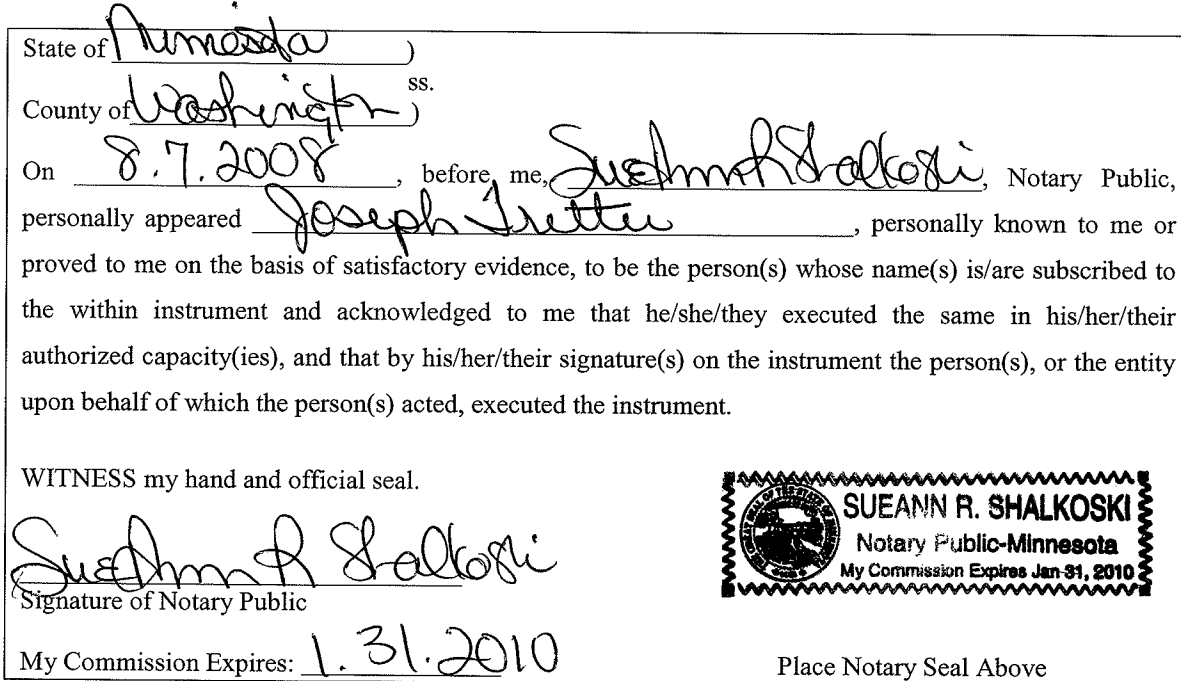 State of Minnesota )
ss.
County of Washington )
On 8.7.2008, before me, SueAnn R Shalkoski, Notary Public,
personally appeared Joseph Tretter, personally known to me or
proved to me on the basis of satisfactory evidence, to be the person(s) whose name(s) is/are subscribed to
the within instrument and acknowledged to me that he/she/they executed the same in his/her/their
authorized capacity(ies), and that by his/her/their signature(s) on the instrument the person(s), or the entity
upon behalf of which the person(s) acted, executed the instrument.
WITNESS my hand and official seal.
SUEANN R. SHALKOSKI
Notary Public-Minnesota
My Commission Expires Jan 31, 2010
SueAnn R Shalkoski
Signature of Notary Public
My Commission Expires: 1.31.2010
Place Notary Seal Above